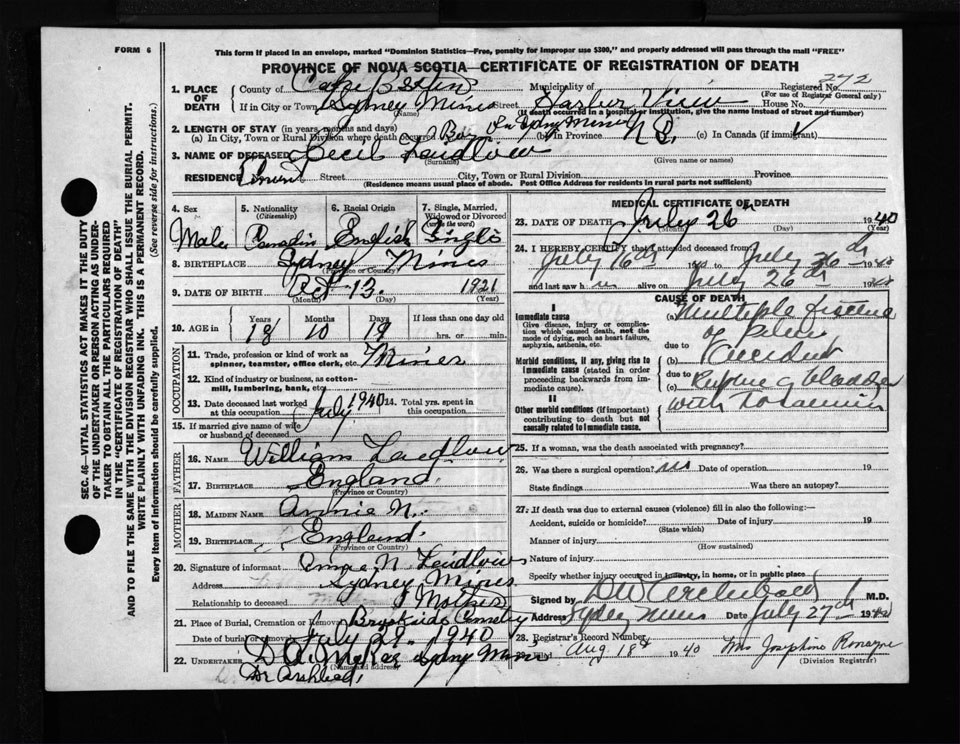 FORM 6
This form if placed in an envelope, marked "Dominion Statistics—Free, penalty for improper use $300," and properly addressed will pass through the mail "FREE"
PROVINCE OF NOVA SCOTIA—CERTIFICATE OF REGISTRATION OF DEATH
SEC. 46—VITAL STATISTICS ACT MAKES IT THE DUTY
OF THE UNDERTAKER OR PERSON ACTING AS UNDER-
TAKER TO OBTAIN ALL THE PARTICULARS REQUIRED
IN THE "CERTIFICATE OF REGISTRATION OF DEATH"
AND TO FILE THE SAME WITH THE DIVISION REGISTRAR WHO SHALL ISSUE THE BURIAL PERMIT.
WRITE PLAINLY WITH UNFADING INK. THIS IS A PERMANENT RECORD.
Every item of Information should be carefully supplied. (See reverse side for instructions.)
1. PLACE OF DEATH County of Cape Breton Municipality of Registered No. 272
(For use of Registrar General only)
If in City or Town Sydney Mines Street Harbor View House No.
(Name) (If death occurred in a hospital or institution, give the name instead of street and number)
2. LENGTH OF STAY (in years, months and days)
(a) In City, Town or Rural Division where death occurred Sydney Mines (b) in Province N.S. (c) In Canada (if immigrant)
3. NAME OF DECEASED Cecil Laidlow
(Surname) (Given name or names)
RESIDENCE Street City, Town or Rural Division Province
(Residence means usual place of abode. Post Office Address for residents in rural parts not sufficient)
4. Sex Male
5. Nationality (Citizenship) Canadin
6. Racial Origin English
7. Single, Married, Widowed or Divorced (write the word) Single
8. BIRTHPLACE Sydney Mines
(Province or Country)
9. DATE OF BIRTH Oct 13 1921
(Month) (Day) (Year)
10. AGE in Years Months Days If less than one day old
18 10 19 hrs. or min.
OCCUPATION
11. Trade, profession or kind of work as spinner, teamster, office clerk, etc. Miner
12. Kind of industry or business, as cotton-mill, lumbering, bank, etc.
13. Date deceased last worked at this occupation July 1940 14. Total yrs. spent in this occupation
15. If married give name of wife or husband of deceased
FATHER
16. NAME William Laidlow
17. BIRTHPLACE England
(Province or Country)
MOTHER
18. MAIDEN NAME Annie N.
19. BIRTHPLACE England
(Province or Country)
20. Signature of informant Annie N Laidlow
Address Sydney Mines
Relationship to deceased Mother
21. Place of Burial, Cremation or Removal Brookside Cemetry
Date of burial or removal July 29. 1940
22. UNDERTAKER Sydney Mines
(Name and address)
MEDICAL CERTIFICATE OF DEATH
23. DATE OF DEATH July 26th 1940
(Month) (Day) (Year)
24. I HEREBY CERTIFY that I attended deceased from
July 16th 1940 to July 26th 1940
and last saw h im alive on July 26th 1940
CAUSE OF DEATH
I
Immediate cause
Give disease, injury or complication which caused death, not the mode of dying, such as heart failure, asphyxia, asthenia, etc.
(a) Multiple
of Pelvis
due to
Morbid conditions, if any, giving rise to immediate cause (stated in order proceeding backwards from immediate cause).
(b) Accident
due to
(c) Rupture of bladder
with
II
Other morbid conditions (if important) contributing to death but not causally related to immediate cause.
25. If a woman, was the death associated with pregnancy?
26. Was there a surgical operation? no Date of operation 19
State findings Was there an autopsy?
27. If death was due to external causes (violence) fill in also the following:—
Accident, suicide or homicide? Date of injury 19
(State which)
Manner of injury
(How sustained)
Nature of injury
Specify whether injury occurred in industry, in home, or in public place
Signed by D W Archibald M.D.
Address Sydney Mines Date July 27th 1940
28. Registrar's Record Number
Filed Aug 18th 1940 Mrs Josephine Ronayne
(Division Registrar)